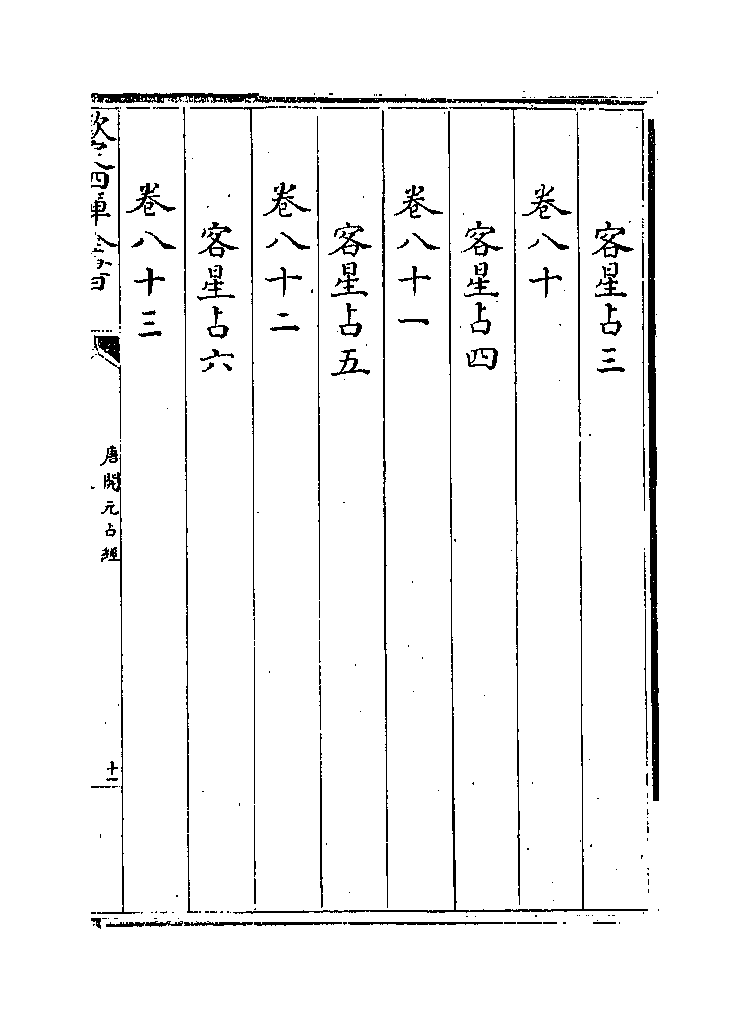 客星占三
卷八十
客星占四
卷八十一
客星占五
卷八十二
客星占六
卷八十三
欽定四庫全書
唐開元占經
十一